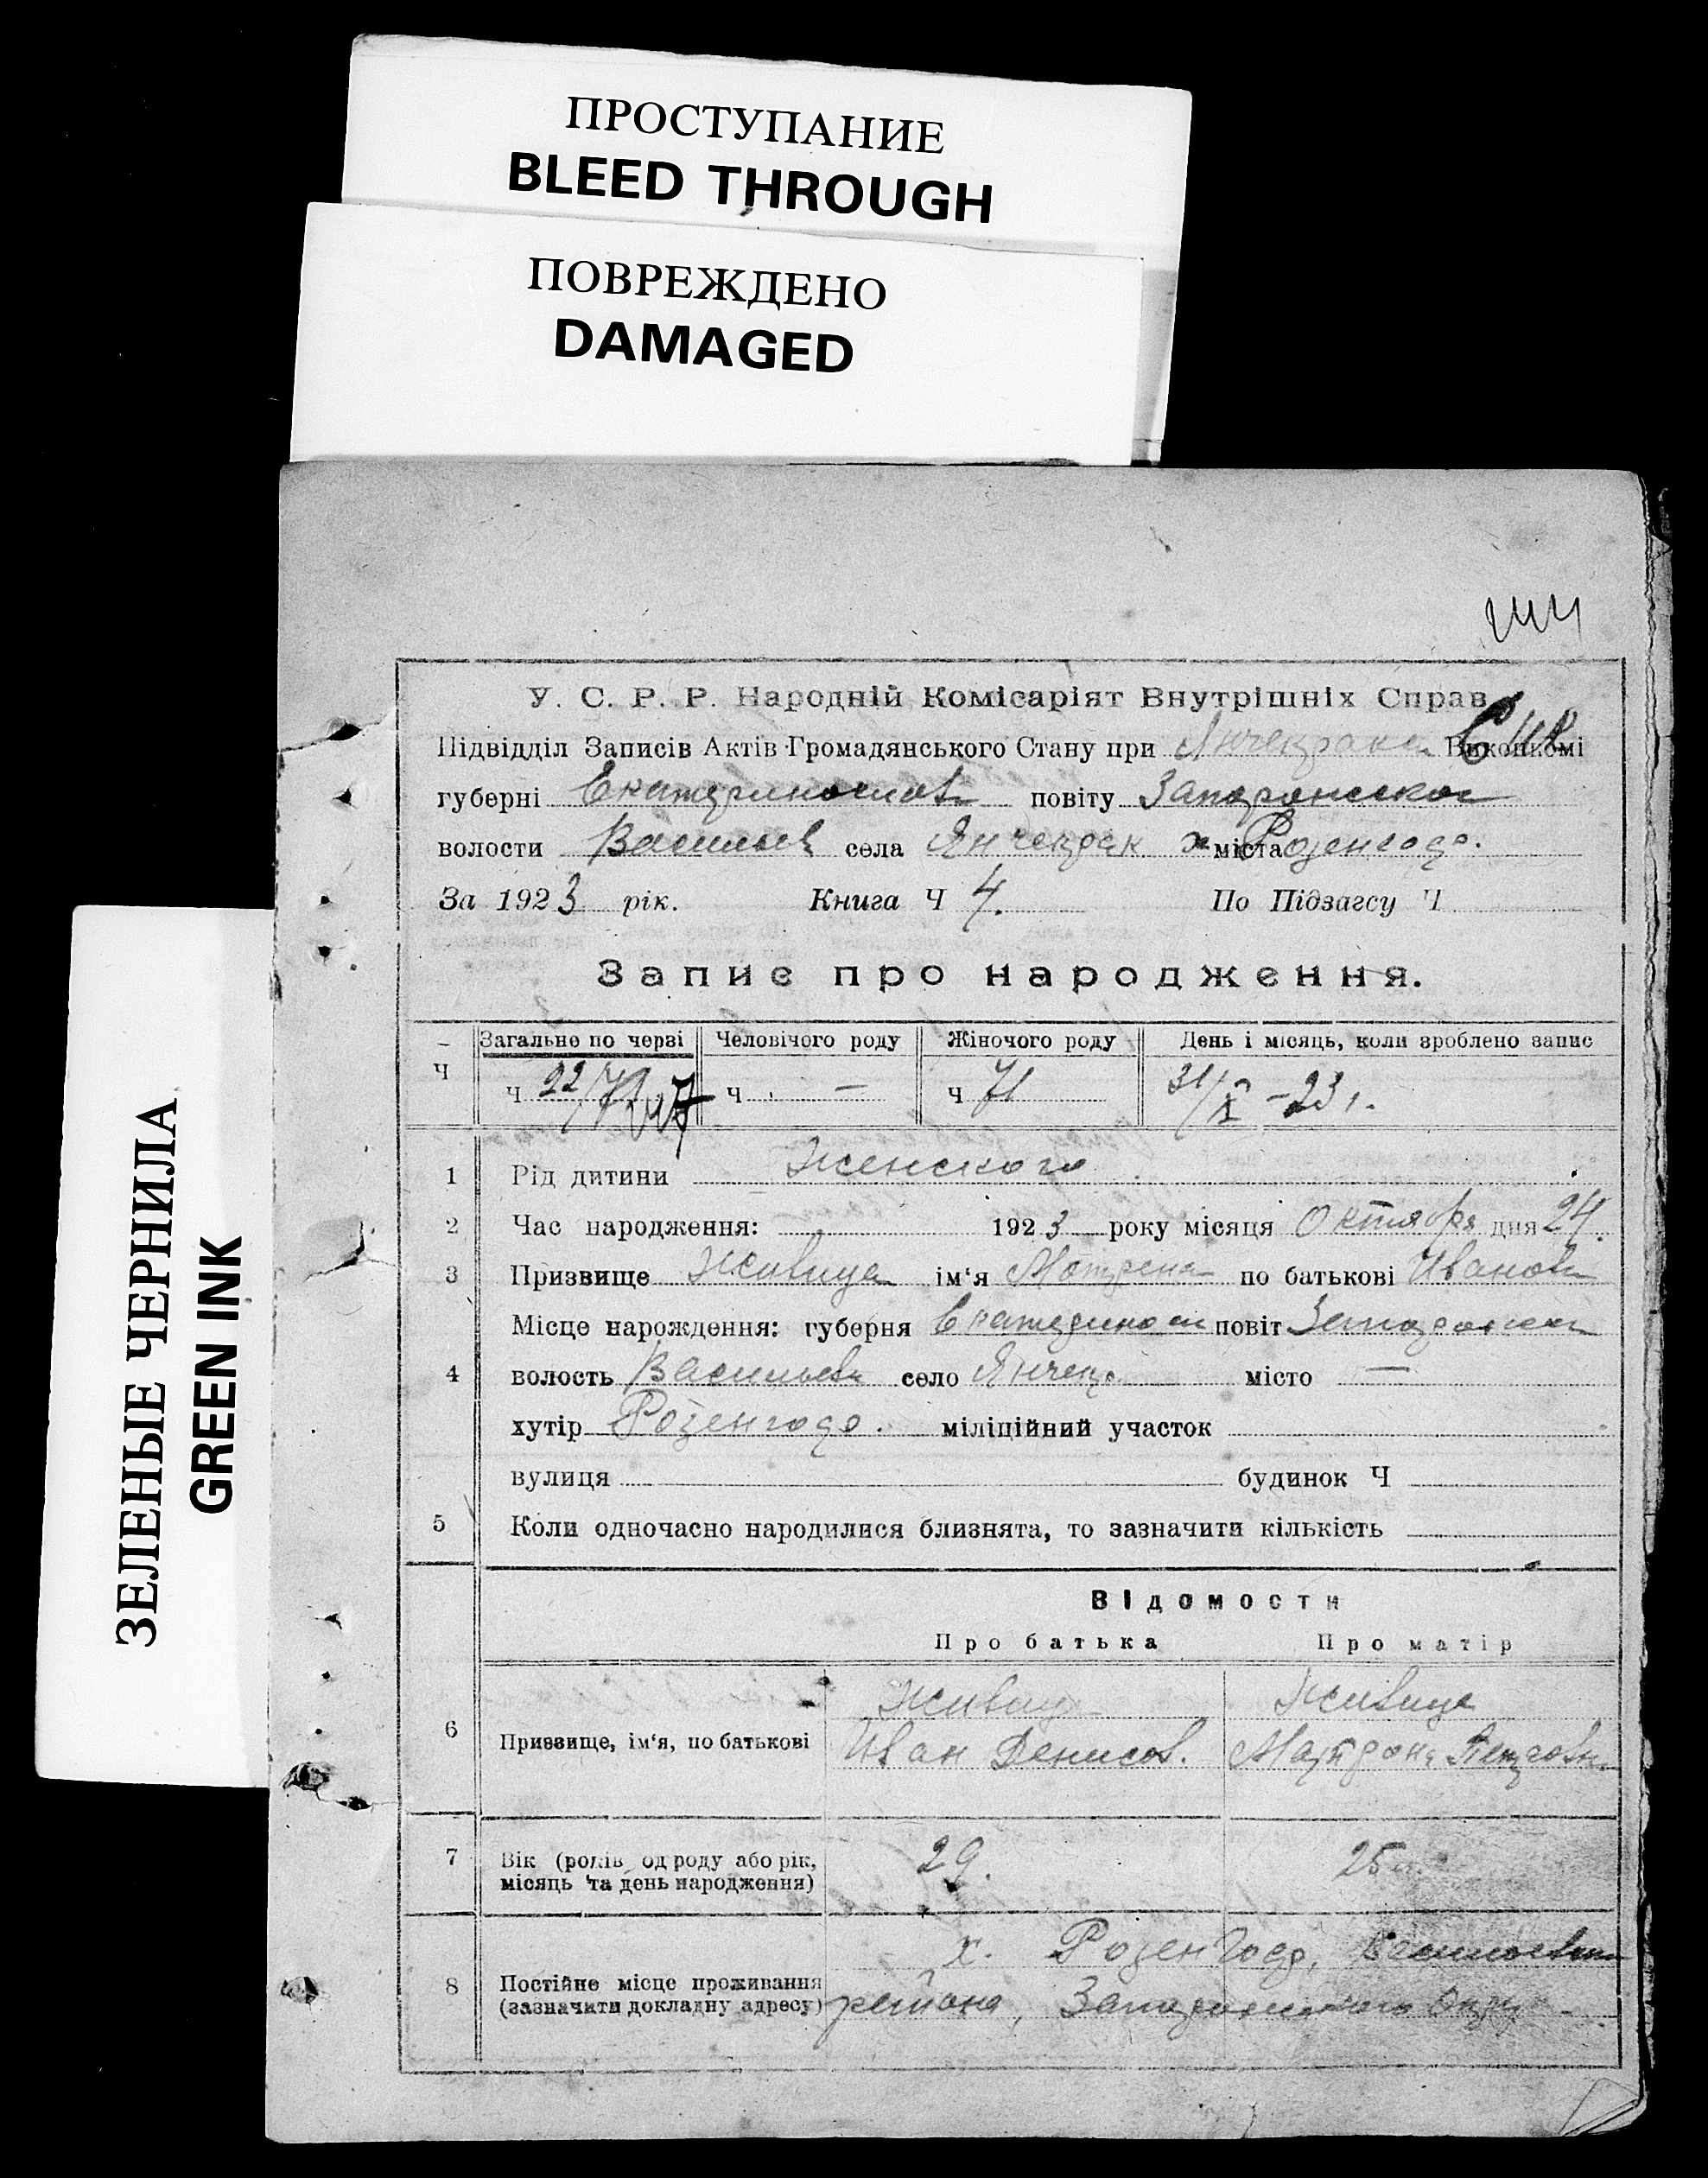 ПРОСТУПАНИЕ
BLEED THROUGH
ПОВРЕЖДЕНО
DAMAGED
ЗЕЛЕНЫЕ ЧЕРНИЛА
GREEN INK
144
У. С. Р. Р. Народній Комісаріят Внутрішніх Справ
Підвідділ Записів Актів Громадянського Стану при Янчекрак Виконкомі
губерні Екатеринослав повіту Запорожского
волости Васильев села Янчекрак х міста Розенгоф.
За 1923 рік. Книга Ч 4. По Підзагсу Ч
Запис про народження.
Ч Загальне по черзі Человічого роду Жіночого роду День і місяць, коли зроблено запис
Ч 22/71 Ч — Ч 71 31/X – 23 г.
1 Рід дитини Женского
2 Час народження: 1923 року місяця Октября дня 24.
3 Призвище Живица ім‘я Мотрена по батькові Иванов
Місце нарождення: губерня Екатериносл повіт Запорожск
4 волость Васильев село Янчекр. місто —
хутір Розенгоф. міліційний участок
вулиця будинок Ч
5 Коли одночасно народилися близнята, то зазначити кількість
Відомости
Про батька Про матір
Живица Живица
6 Призвище, ім‘я, по батькові Иван Денисов. Матрона Петровн
7 Вік (років од роду або рік, 29. 25
місяць та день народження)
х. Розенгоф, Васильевск
8 Постійне місце проживання
(зазначити докладну адресу) района, Запорожского Округ